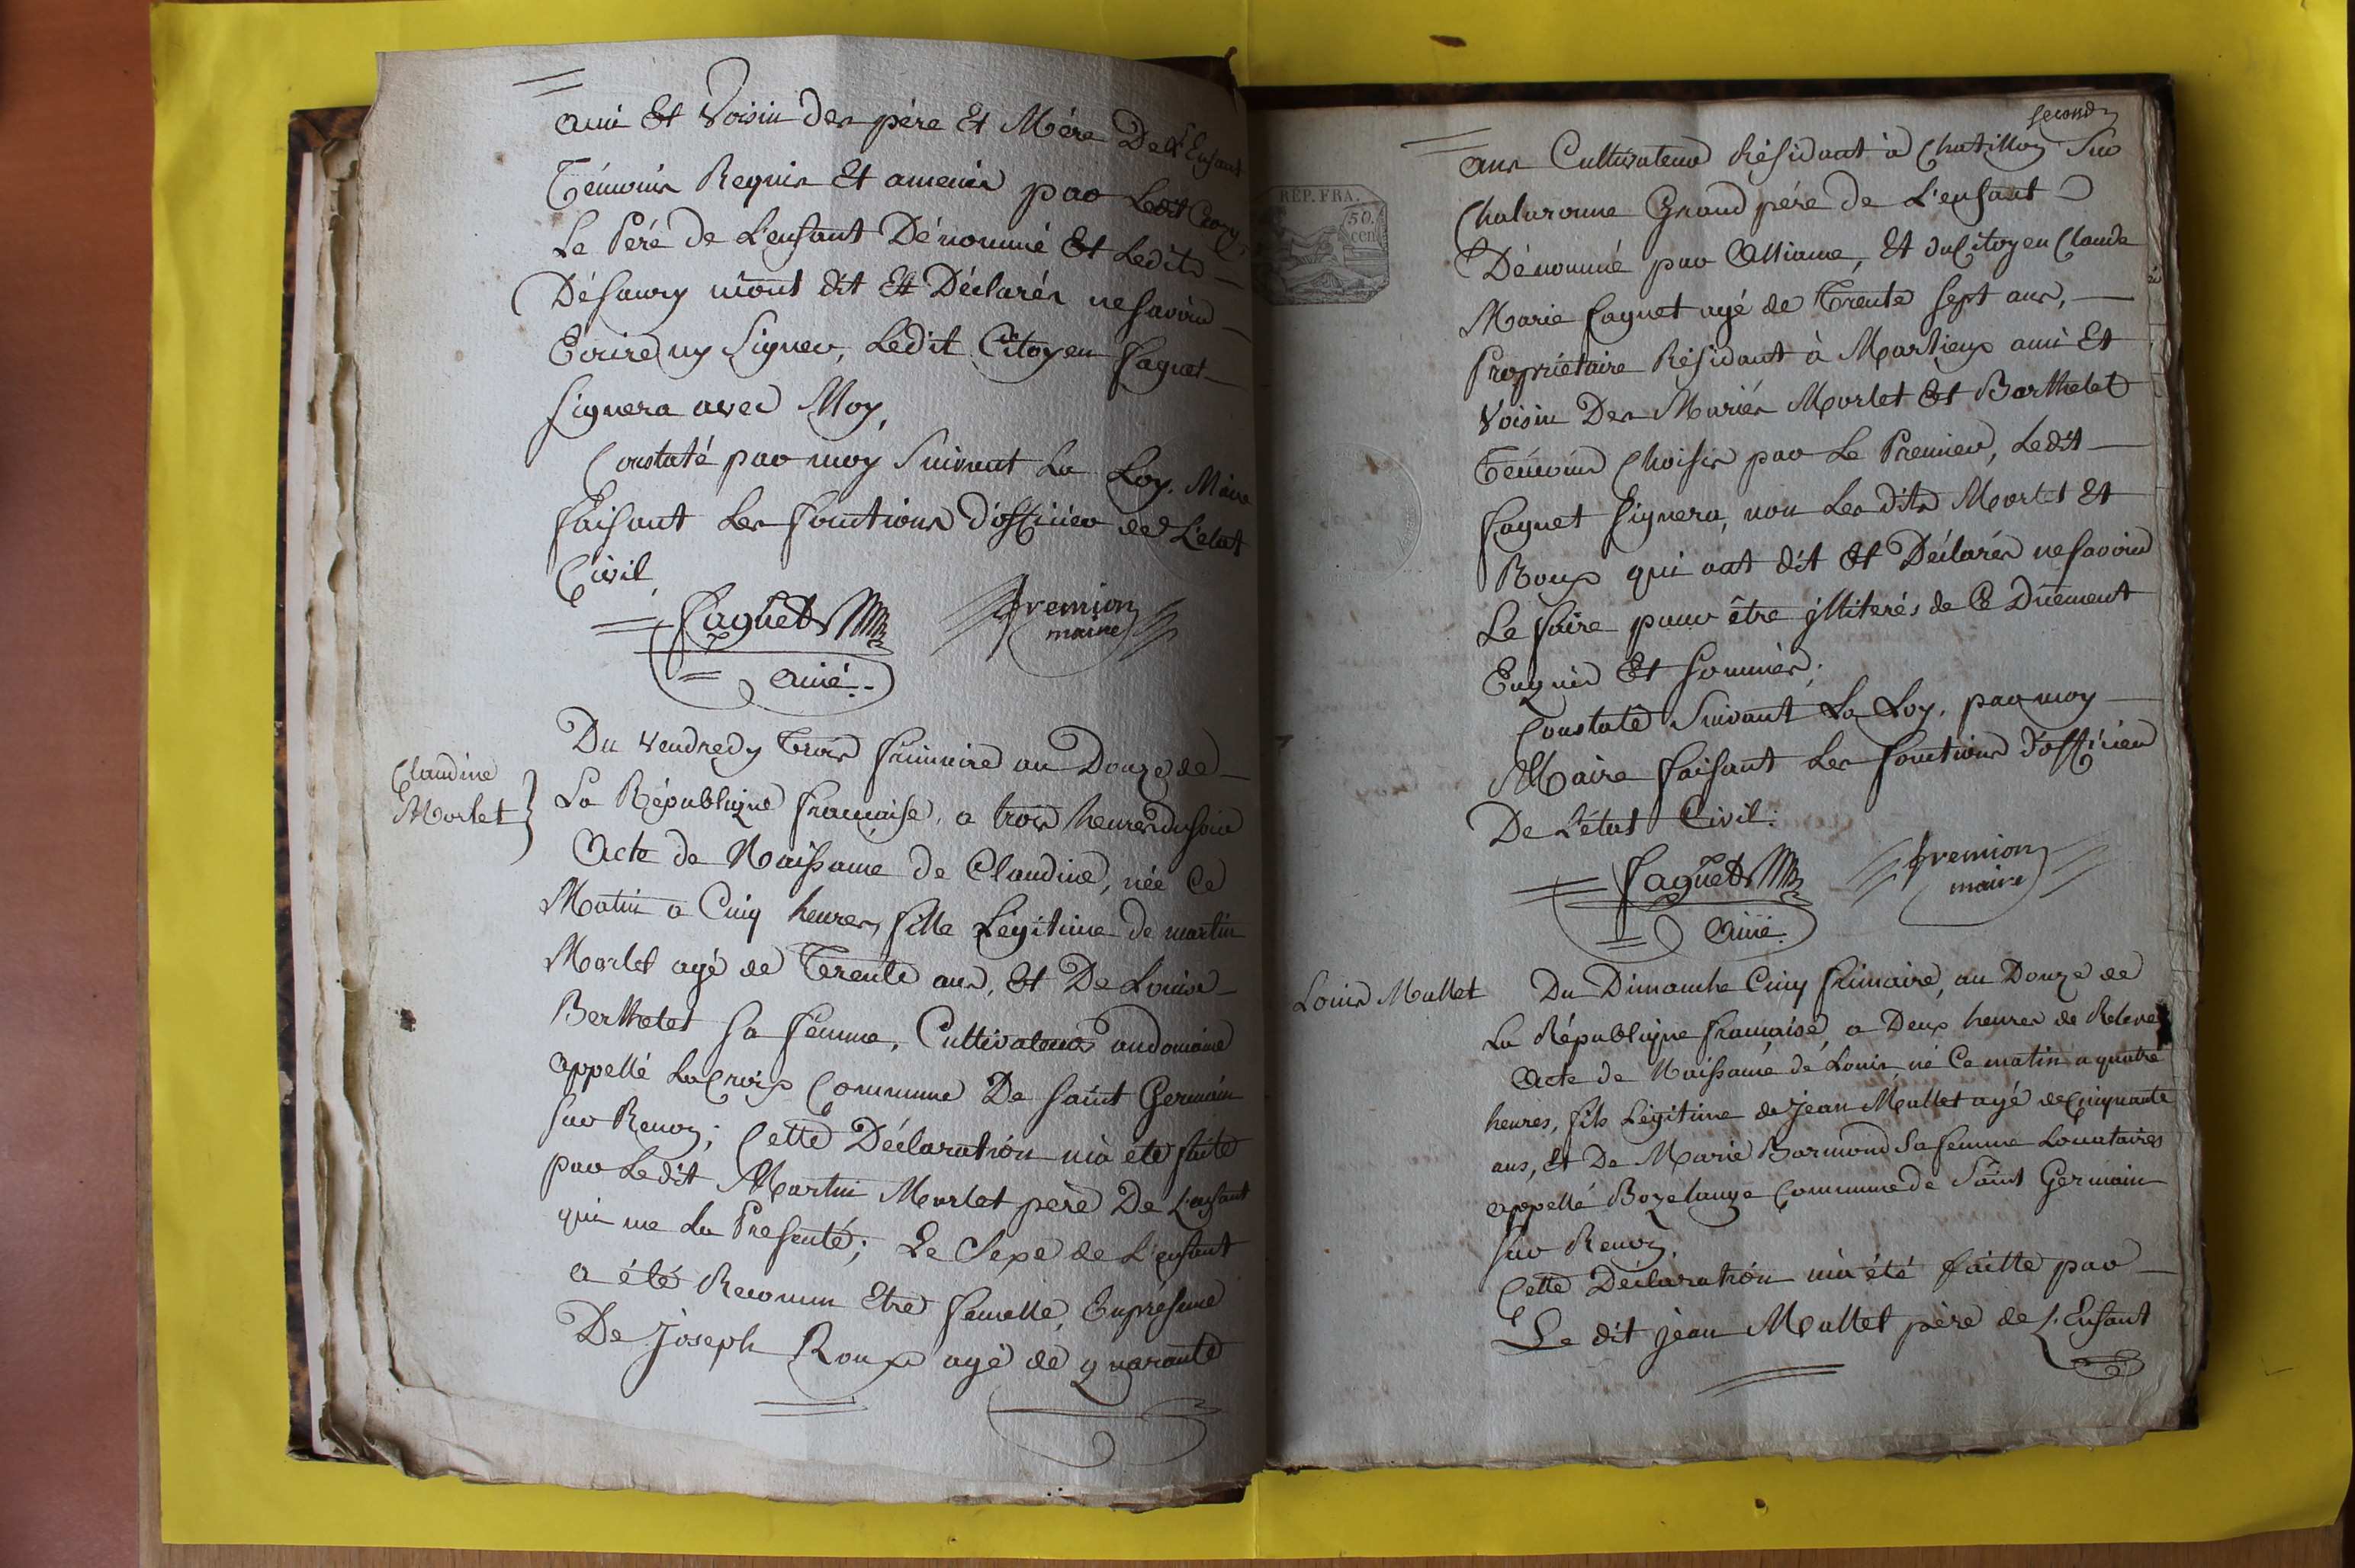 ami Et Voisin des père Et Mère De L'Enfant
Témoins Requis Et amenés par Ledit
Le Péré de L'enfant Dénommé Et Ledit
Désaury m'ont dit Et Déclarés ne savoir
Ecrire ny Signer, Ledit Citoyen faguet
signera avec Moy,
Constaté par moy Suivant La Loy. Maire
faisant Les fonctions d'officier de L'etat
Civil
faguet
ainé
fremion
maire
Claudine
Morlet
Du Vendredy trois frimaire an Douze de
La République francaise, a trois heures du soir
Acte de Naissance de Claudine, née Ce
Matin a Cinq heures, fille Légitime de martin
Morlet agé de Trente ans, Et De Louise
Berthelet sa femme, Cultivateurs au domaine
appellé La Croix Commune De saint Germain
sur Renon; Cette Déclaration m'a eté faite
par Ledit Martin Morlet père De L'enfant
qui me La Presenté; Le Sexe de L'enfant
a été Reconnu Etre femelle, En presence
De Joseph Roux agé de quarante
second
ans Cultivateur Résidant à Chatillon Sur
Chalaronne Grand père de L'enfant
Dénommé par Alliance, Et du Citoyen Claude
Marie faguet agé de Trente sept ans,
Propriétaire Résidant à Marlieux ami Et
Voisin Des Mariés Morlet Et Barthelet
Témoins Choisis par Le Premier, Ledit
faguet signera, non Les dits Morlet Et
Roux qui ont dit Et Déclarés ne savoir
Le faire pour être jlliterés de Ce Duement
Enquis Et sommés;
Constaté Suivant La Loy. par moy
Maire faisant Les fonctions d'officier
De L'état Civil.
REP. FRA.
50.
cen
faguet
ainé
fremion
maire
Louis Mallet
Du Dimanche Cinq frimaire, an Douze de
La République francaise, a Deux heures de Relevé
Acte de Naissance de Louis, né Ce matin a quatre
heures, fils Légitime de jean Mallet agé de Cinquante
ans, Et De Marie Barmond Sa femme Locataires
appellé Bozelange Commune de Saint Germain
sur Renon.
Cette Déclaration m'a été faitte par
Le dit jean Mallet père de L'Enfant